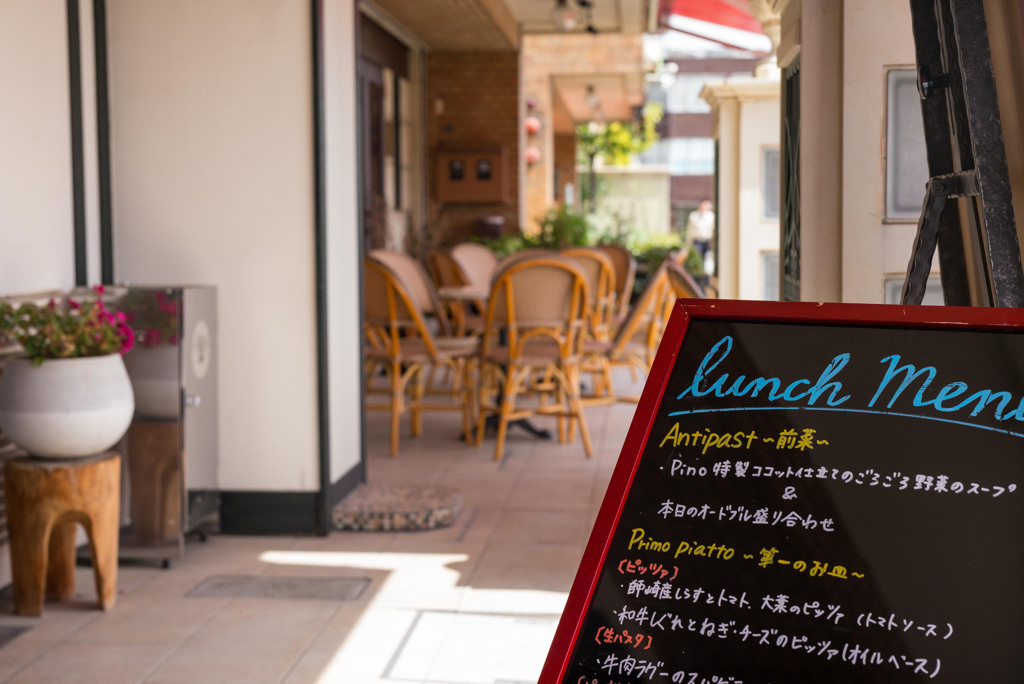 lunch Men
Antipast ~前菜~
・Pino 特製 ココット仕立てのごろごろ野菜のスープ
&
本日のオードブル盛り合わせ
Primo piatto ~第一のお皿~
(ピッツァ)
・師崎産しらすとトマト、大葉のピッツァ (トマトソース)
・和牛しぐれとねぎ・チーズのピッツァ(オイルベース)
(生パスタ)
・牛肉ラグーのスパゲ